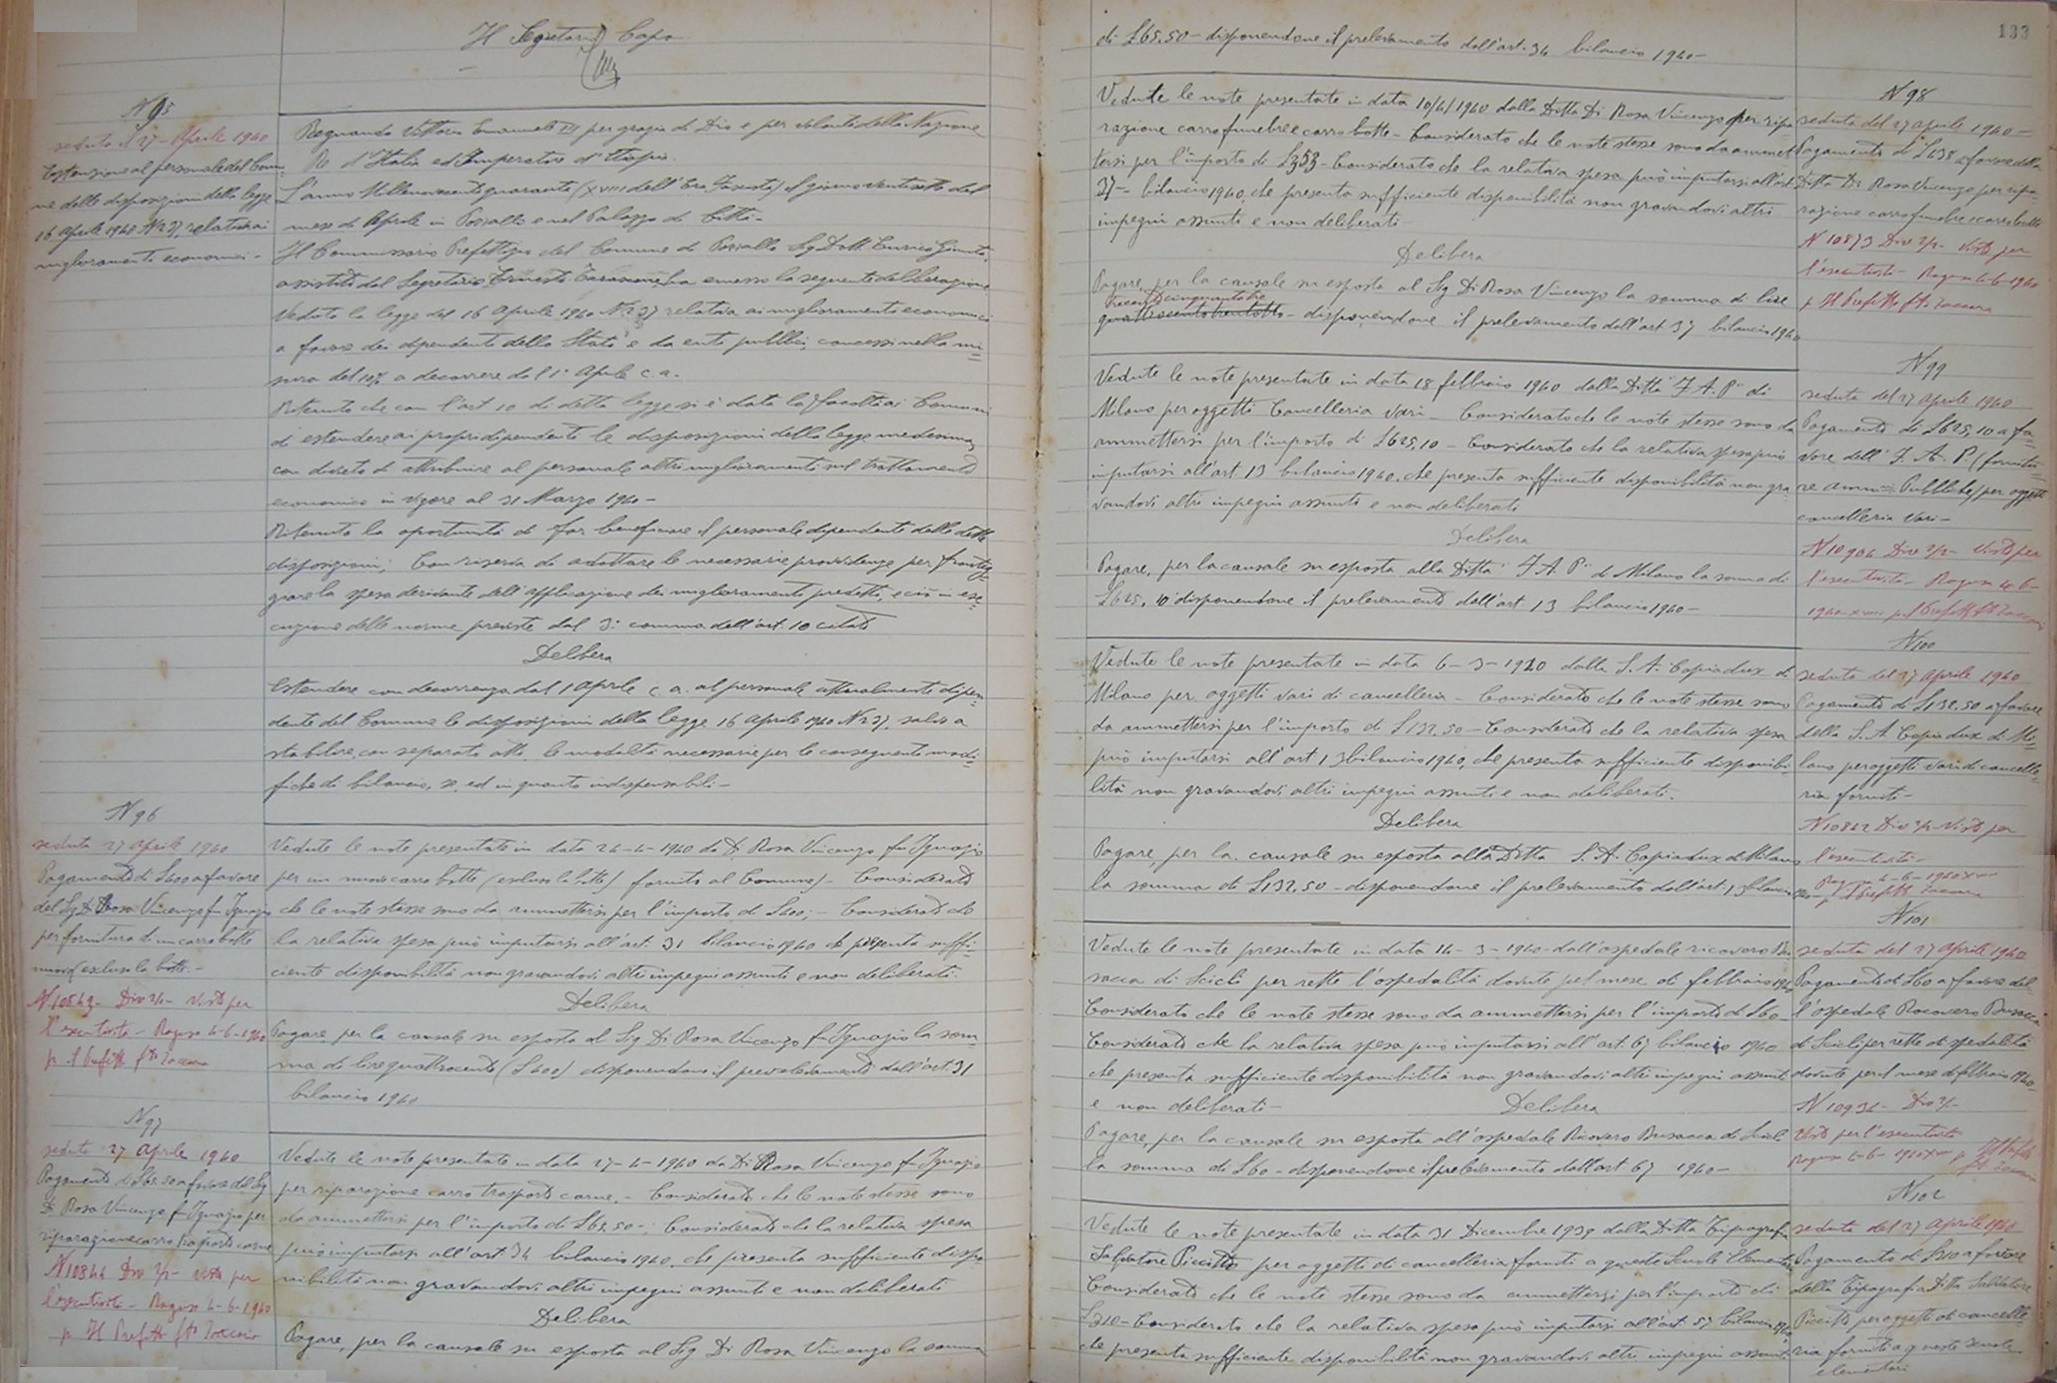 Il Segretario Capo
N 95
seduta d 27 Aprile 1940
Estensione al personale del Comu-
ne delle disposizioni della legge
16 Aprile 1940 N 237, relativa ai
miglioramenti economici -
Regnando Vittorio Emanuele III per grazia di Dio e per volontà della Nazione
Re d'Italia ed Imperatore d'Etiopia.
L'anno Millenovecentoquaranta (XVIII dell'Era Fascista) il giorno ventisette del
mese di Aprile in Pozzallo e nel Palazzo di Città -
Il Commissario Prefettizio del Comune di Pozzallo Sg Dott. Enrico Giunta,
assistito dal Segretario Ernesto ha emesso la seguente deliberazione
Veduta la legge del 16 Aprile 1940 N 237 relativa ai miglioramenti economici
a favore dei dipendenti dello Stato e da enti pubblici, concessi nella mi=
sura del 10% a decorrere dal 1° Aprile c.a.
Ritenuto che con l'art 10 di detta legge si è data la facoltà ai Comuni
di estendere ai propri dipendenti le disposizioni della legge medesima,
con divieto di attribuire al personale altri miglioramenti sul trattamento
economico in vigore al 31 Marzo 1940 -
Ritenuta la oportunità di far beneficiare il personale dipendente delle dette
disposizioni; Con riserva di adottare le necessarie provvidenze per frontég-
giare la spesa derivante dall'applicazione dei miglioramenti predetti, e ciò in ese-
cuzione delle norme previste dal 3° comma dell'art. 10 citato
Delibera
Estendere con decorrenza dal 1 Aprile c.a. al personale attualmente dipen-
dente del Comune le disposizioni della legge 16 Aprile 1940 N 237, salvo a
stabilire, con separato atto, le modalità necessarie per le conseguenti modi-
fiche di bilancio, se, ed in quanto indispensabili -
N 96
seduta 27 Aprile 1940
Pagamento di £400 a favore
del Sg Di Rosa Vincenzo fu Ignazio
per fornitura di un carro botte
nuovo (escluso la botte. -
N 10843 - Div 2/1 - Visto per
l'esecutività - Ragusa 4-6-1940
p. Il Prefetto fto Zaccaria
Vedute le note presentate in data 24-4-1940 da Di Rosa Vincenzo fu Ignazio
per un nuovo carro botte (escluso la botte) fornito al Comune) - Considerato
che le note stesse sono da ammettersi per l'importo di £400; - Considerato che
la relativa spesa può imputarsi all'art. 31 bilancio 1940 che presenta suffi-
ciente disponibilità non gravandovi altri impegni assunti e non deliberati.
Delibera
Pagare per la causale su esposta al Sg Di Rosa Vincenzo fu Ignazio la som-
ma di lire quattrocento (£400) disponendone il prevelevamento dall'art. 31
bilancio 1940
N 97
seduta 27 Aprile 1940
Pagamento di £65.50 a favore del Sg
Di Rosa Vincenzo fu Ignazio per
riparazione carro trasporto carne
N 10844 Div 2/1 - visto per
l'esecutività - Ragusa 4-6-1940
p. Il Prefetto fto Zaccaria
Vedute le note presentate in data 27-4-1940 da Di Rosa Vincenzo fu Ignazio
per riparazione carro trasporto carne. - Considerato che le note stesse sono
da ammettersi per l'importo di £65.50 -; Considerato che la relativa spesa
può imputarsi all'art. 34 bilancio 1940, che presenta sufficiente dispo
nibilità non gravandovi altri impegni assunti e non deliberati
Delibera
Pagare, per la causale su esposta al Sig Di Rosa Vincenzo la somma
133
di £65.50 - disponendone il prelevamento dall'art. 34 bilancio 1940 -
Vedute le note presentate in data 10/4/1940 dalla Ditta Di Rosa Vincenzo per ripa
razione carro funebre e carro botte - Considerato che le note stesse sono da ammet
tersi per l'importo di £353 - Considerato che la relativa spesa può imputarsi all'art
37 - bilancio 1940, che presenta sufficiente disponibilità non gravandovi altri
impegni assunti e non deliberati
Delibera
Pagare, per la causale su esposta al Sg Di Rosa Vincenzo la somma di lire
trecentocinquantatre
quattrocentotrentotto - disponendone il prelevamento dall'art 37 bilancio 1940
N 98
seduta del 27 aprile 1940 -
Pagamento di £438 a favore della
Ditta Di Rosa Vincenzo per ripa-
razione carro funebre e carro botte
N 10873 Div 2/1 - Visto per
l'esecutività - Ragusa 4-6-1940
p Il Prefetto fto Zaccaria
Vedute le note presentate in data 18 febbraio 1940 dalla Ditta "F.A.P." di
Milano per oggetti Cancelleria vari - Considerato che le note stesse sono da
ammettersi per l'importo di £625,10 - Considerato che la relativa spesa può
imputarsi all'art. 13 bilancio 1940, che presenta sufficiente disponibilità non gra
vandovi altri impegni assunti e non deliberati
Delibera
Pagare, per la causale su esposta alla Ditta "F.A.P." di Milano la somma di
£625,10 disponendone il prelevamento dall'art. 13 bilancio 1940 -
N 99
seduta del 27 aprile 1940
Pagamento di £625,10 a fa-
vore dell' F.A.P. (fornitu=
re amm.ni Pubbliche) per oggetti
cancelleria vari -
N 10904 Div 2/1 - Visto per
l'esecutività - Ragusa 4-6-
1940 XVIII p. Il Prefetto fto Zaccaria
Vedute le note presentate in data 6-3-1940 dalla S.A. Copiadux di
Milano per oggetti vari di cancelleria - Considerato che le note stesse sono
da ammettersi per l'importo di £132.50 - Considerato che la relativa spesa
può imputarsi all'art 13 bilancio 1940, che presenta sufficiente disponibi-
lità non gravandovi altri impegni assunti e non deliberati.
Delibera
Pagare, per la causale su esposta alla Ditta S.A. Copiadux di Milano
la somma di £132.50 - disponendone il prelevamento dall'art. 13 bilancio
N 100
seduta del 27 Aprile 1940
Pagamento di £132.50 a favore
della S.A. Copiadux di Mi-
lano per oggetti vari di cancelle-
ria forniti -
N 10842 Div 2/1 - Visto per
l'esecutività -
Ragusa 4-6-1940 XVIII
p. Il Prefetto Zaccaria
Vedute le note presentate in data 14-3-1940 dall'ospedale ricovero Bu
sacca di Scicli per rette l'ospedalità dovute pel mese di febbraio 1940
Considerato che le note stesse sono da ammettersi per l'importo di £60 -
Considerato che la relativa spesa può imputarsi all'art. 67 bilancio 1940
che presenta sufficiente disponibilità non gravandovi altri impegni assunti
e non deliberati -
Delibera
Pagare, per la causale su esposta all'ospedale Ricovero Busacca di Scicli
la somma di £60 - disponendone il prelevamento dall'art 67 1940 -
N 101
seduta del 27 Aprile 1940
Pagamento di £60 a favore del-
l'ospedale Ricovero Busacca
di Scicli per rette di spedalità
dovute per il mese di febbraio 1940 -
N 10934 - Div 2/1
Visto per l'esecutività
Ragusa 4-6-1940 XVIII p Il Prefetto
fto Zaccaria
Vedute le note presentate in data 31 Dicembre 1939 dalla Ditta Tipografia
Salvatore Piccitto per oggetti di cancelleria forniti a queste Scuole Elementari
Considerato che le note stesse sono da ammettersi per l'importo di
£210 - Considerato che la relativa spesa può imputarsi all'art. 57 bilancio 1940
che presenta sufficiente disponibilità non gravandovi altri impegni assunti
N 102
seduta del 27 Aprile 1940
Pagamento di £210 a favore
della Tipografia Ditta Salvatore
Piccitto per oggetti di cancelle
ria forniti a queste scuole
elementari